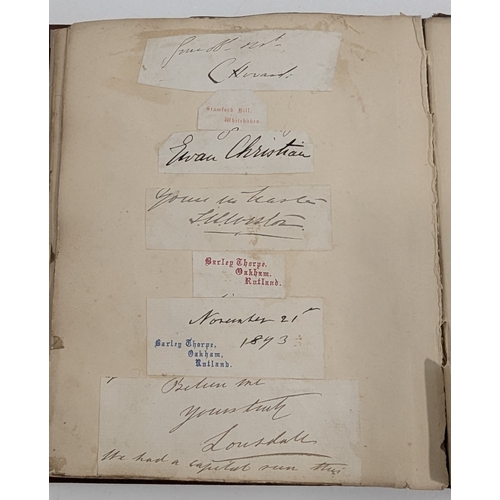 C Howard
Stamford Hill,
Whitehaven.
Ewan Christian
Yours in haste
Barley Thorpe,
Oakham,
Rutland.
November 21st
1893
Barley Thorpe,
Oakham,
Rutland.
Believe me
Yours truly
Lonsdale
We had a capital run this